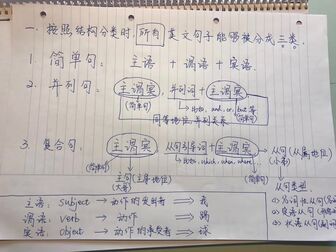 一. 按照结构分类时, 所有英文句子能够被分成三类.
1. 简单句: 主语 + 谓语 + 宾语.
2. 并列句: 主谓宾, 并列词 + 主谓宾
(简单句) and, or, but 等 (简单句)
同等地位, 并列关系
3. 复合句: 主谓宾 + 从句引导词 + 主谓宾 → 从句(从属地位)
(简单句) which, when, where... (简单句) (小弟)
主句(主导地位)
(大哥)
从句类型
主语: subject → 动作的发出者 → 我
谓语: verb → 动作 → 踢
宾语: object → 动作的承受者 → 球
① 名词性从句
② 定语从句
③ 状语从句